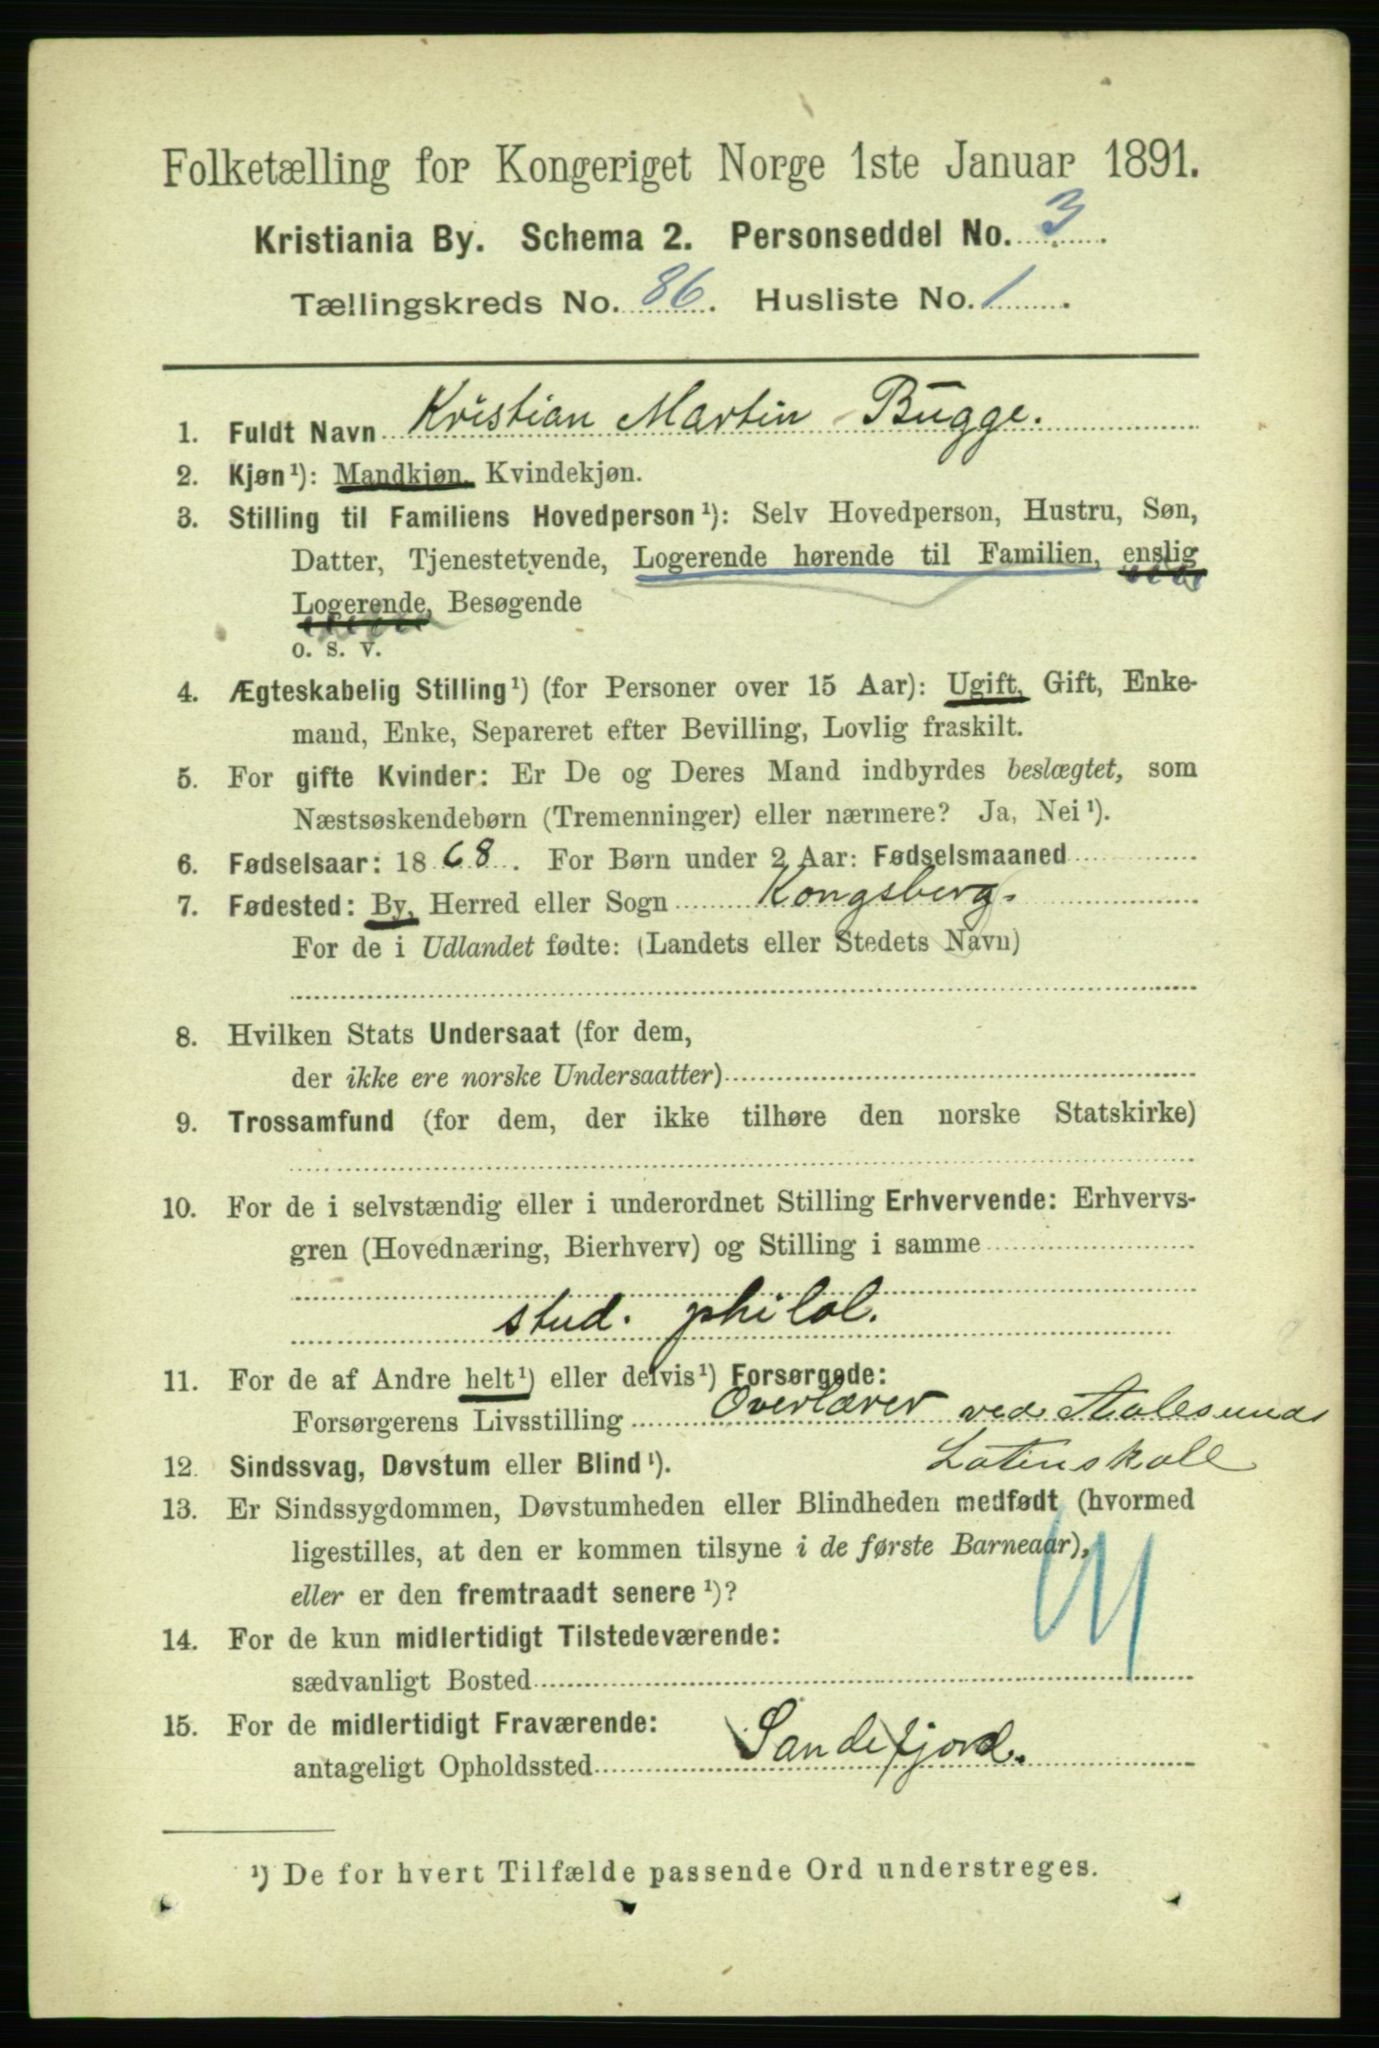 Folketælling for Kongeriget Norge 1ste Januar 1891.
Kristiania By. Schema 2. Personseddel No. 3
Tællingskreds No. 86. Husliste No. 1.
1. Fuldt Navn Kristian Martin Bugge.
2. Kjøn¹): Mandkjøn, Kvindekjøn.
3. Stilling til Familiens Hovedperson¹): Selv Hovedperson, Hustru, Søn,
Datter, Tjenestetyende, Logerende hørende til Familien, enslig
Logerende, Besøgende
o. s. v.
4. Ægteskabelig Stilling¹) (for Personer over 15 Aar): Ugift, Gift, Enke-
mand, Enke, Separeret efter Bevilling, Lovlig fraskilt.
5. For gifte Kvinder: Er De og Deres Mand indbyrdes beslægtet, som
Næstsøskendebørn (Tremenninger) eller nærmere? Ja, Nei¹).
6. Fødselsaar: 1868. For Børn under 2 Aar: Fødselsmaaned
7. Fødested: By, Herred eller Sogn Kongsberg.
For de i Udlandet fødte: (Landets eller Stedets Navn)
8. Hvilken Stats Undersaat (for dem,
der ikke ere norske Undersaatter)
9. Trossamfund (for dem, der ikke tilhøre den norske Statskirke)
10. For de i selvstændig eller i underordnet Stilling Erhvervende: Erhvervs-
gren (Hovednæring, Bierhverv) og Stilling i samme
stud. philol.
11. For de af Andre helt¹) eller delvis¹) Forsørgede:
Forsørgerens Livsstilling Overlærer ved Aalesunds
Latinskole
12. Sindssvag, Døvstum eller Blind¹).
13. Er Sindssygdommen, Døvstumheden eller Blindheden medfødt (hvormed
ligestilles, at den er kommen tilsyne i de første Barneaar),
eller er den fremtraadt senere¹)?
14. For de kun midlertidigt Tilstedeværende:
sædvanligt Bosted
15. For de midlertidigt Fraværende:
antageligt Opholdssted Sandefjord.
¹) De for hvert Tilfælde passende Ord understreges.